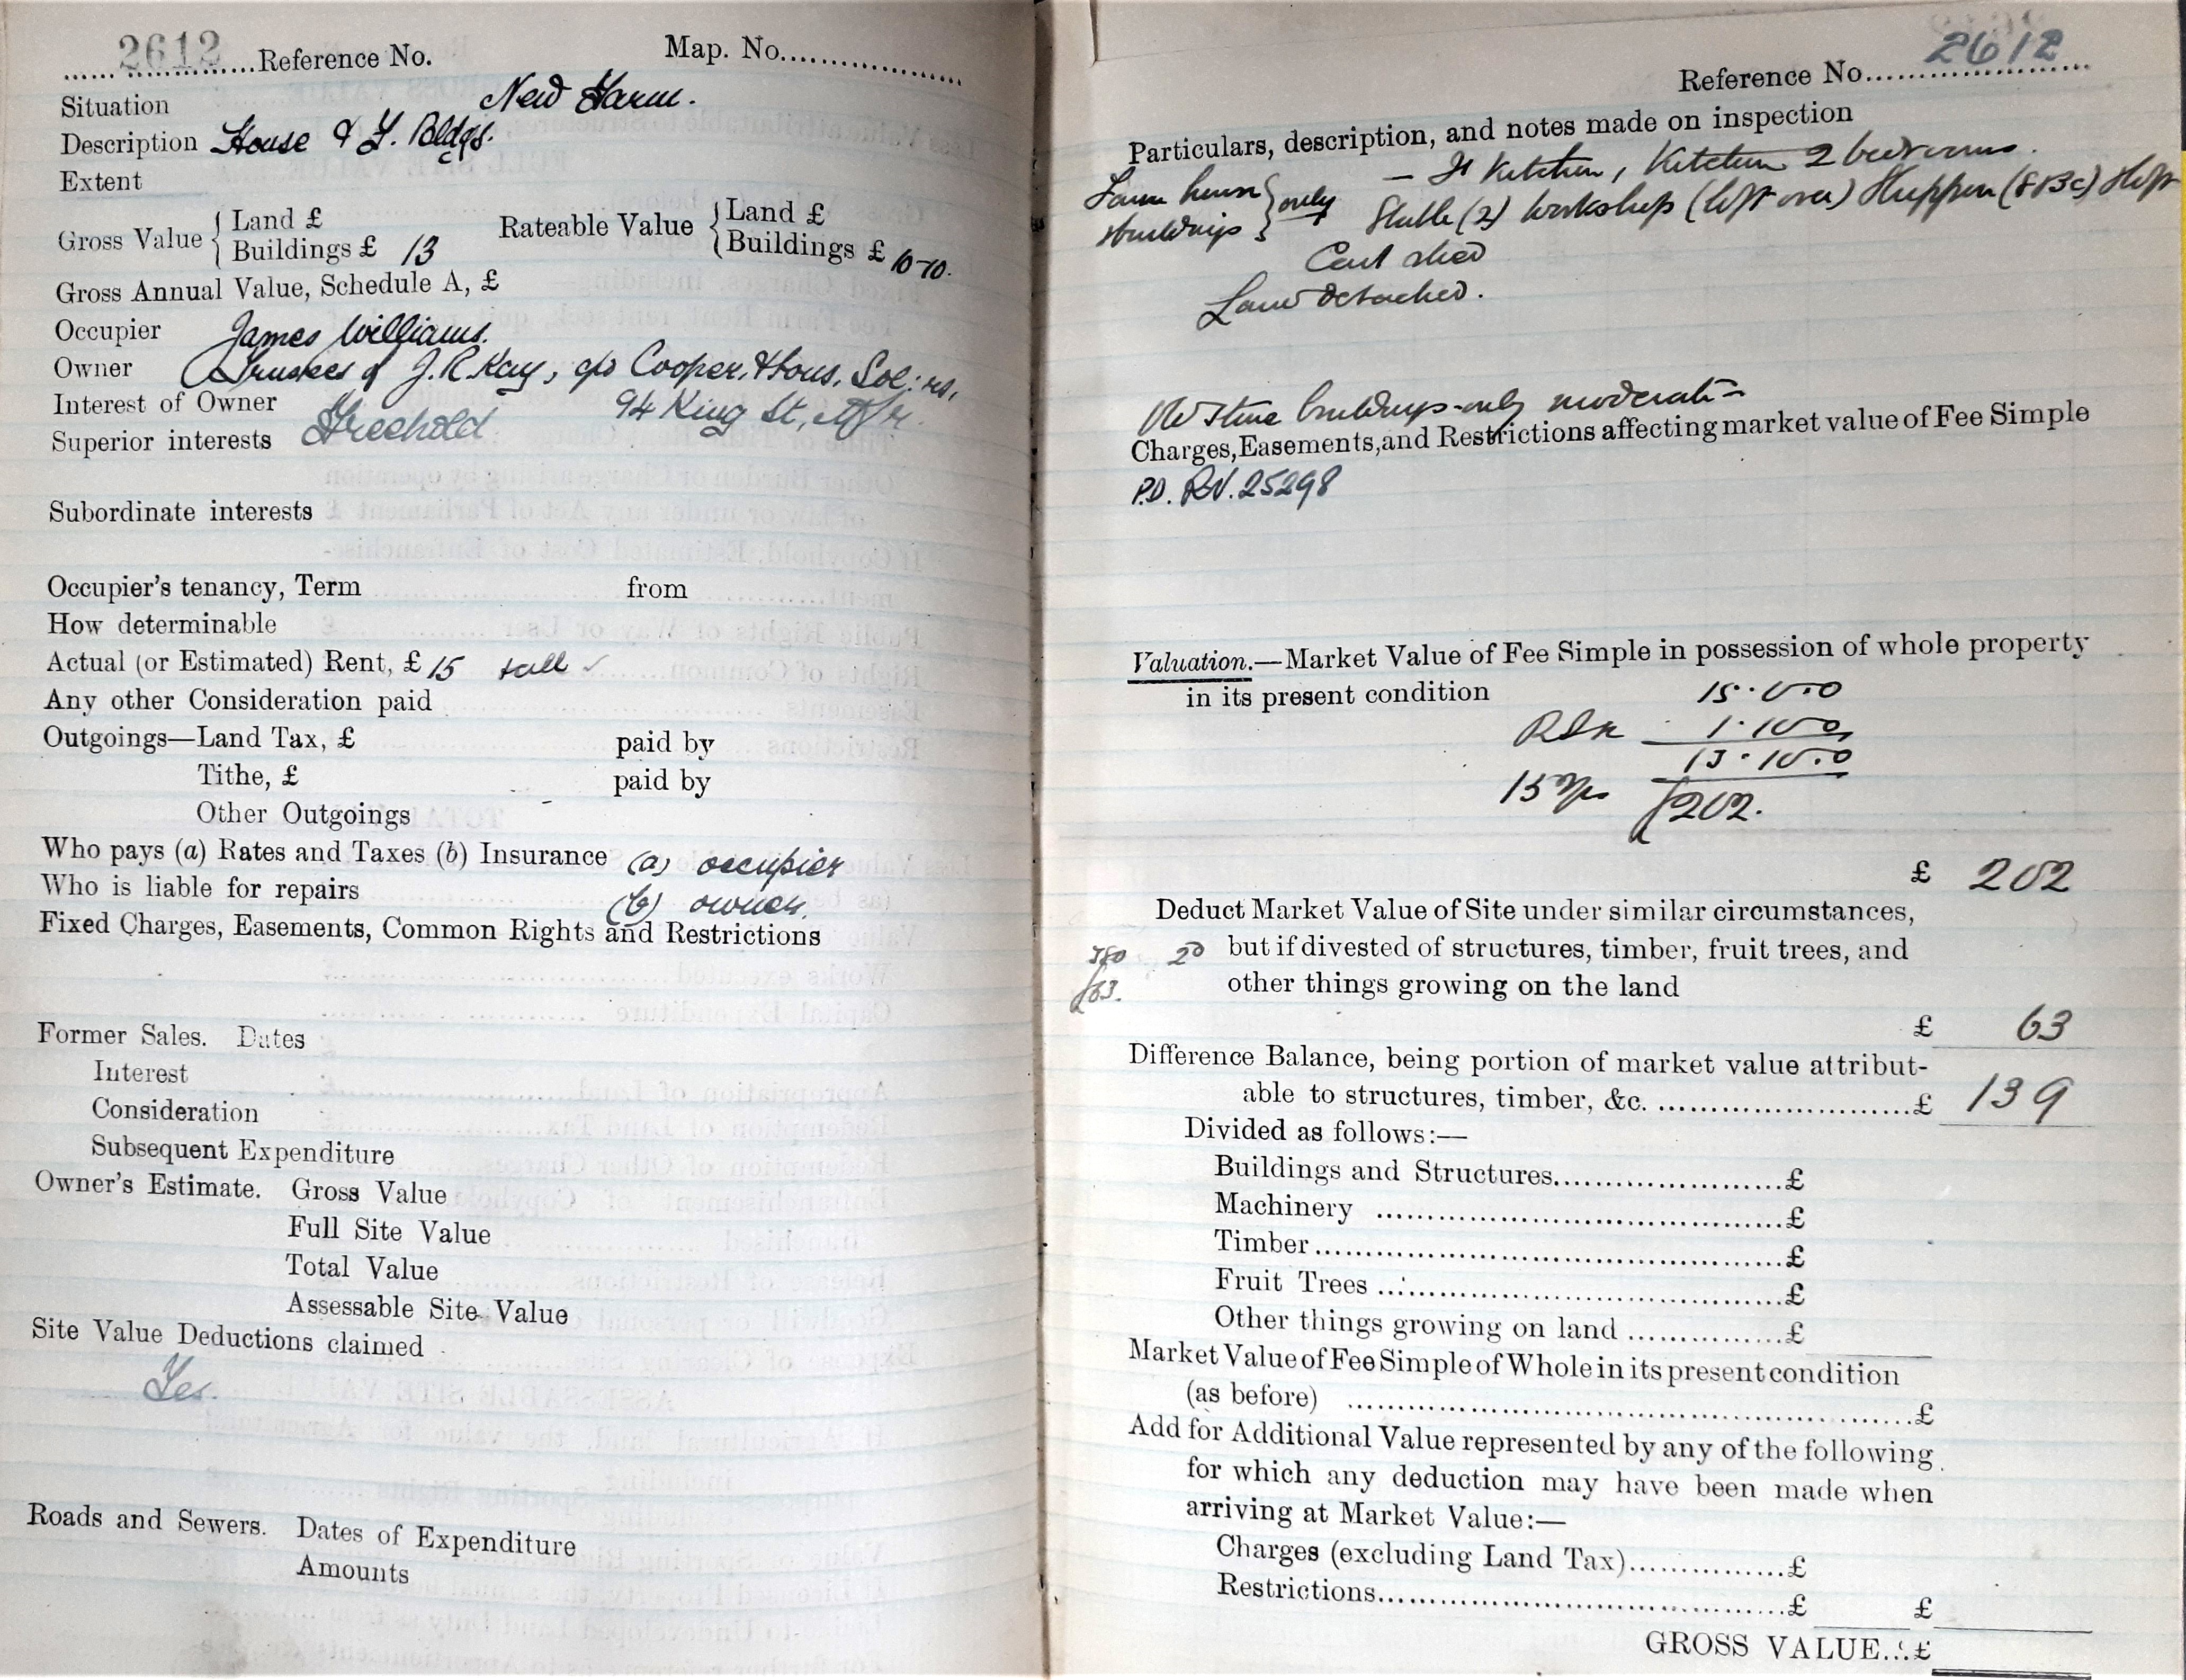 2612 Reference No. Map. No.
Situation New Farm.
Description House & F. Bldgs.
Extent
Gross Value { Land £
Buildings £ 13
Rateable Value { Land £
Buildings £ 10-10.
Gross Annual Value, Schedule A, £
Occupier James Williams.
Owner Trustees of J.R. Kay, c/o Cooper, & Sons, Sol:rs,
Interest of Owner Freehold 94 King St, M/r.
Superior interests
Subordinate interests
Occupier's tenancy, Term from
How determinable
Actual (or Estimated) Rent, £ 15
Any other Consideration paid
Outgoings—Land Tax, £ paid by
Tithe, £ paid by
Other Outgoings
Who pays (a) Rates and Taxes (b) Insurance (a) occupier
Who is liable for repairs (b) owner.
Fixed Charges, Easements, Common Rights and Restrictions
Former Sales. Dates
Interest
Consideration
Subsequent Expenditure
Owner's Estimate. Gross Value
Full Site Value
Total Value
Assessable Site Value
Site Value Deductions claimed
Yes.
Roads and Sewers. Dates of Expenditure
Amounts
Reference No. 2612
Particulars, description, and notes made on inspection
Farm house } only — Kitchen, Kitchen 2 bedrooms.
& buildings Stable (2) Workshop (loft over) Shippon (8 Bc)
Cart shed
Land detached.
Old stone buildings only moderate
Charges, Easements, and Restrictions affecting market value of Fee Simple
P.D. RV. 25298
Valuation.—Market Value of Fee Simple in possession of whole property
in its present condition 15.0.0
1.10.0
13.10.0
15 yrs £202.
£ 202
Deduct Market Value of Site under similar circumstances,
20 but if divested of structures, timber, fruit trees, and
£63. other things growing on the land
£ 63
Difference Balance, being portion of market value attribut-
able to structures, timber, &c. £ 139
Divided as follows:—
Buildings and Structures £
Machinery £
Timber £
Fruit Trees £
Other things growing on land £
Market Value of Fee Simple of Whole in its present condition
(as before) £
Add for Additional Value represented by any of the following
for which any deduction may have been made when
arriving at Market Value:—
Charges (excluding Land Tax) £
Restrictions £ £
GROSS VALUE...£